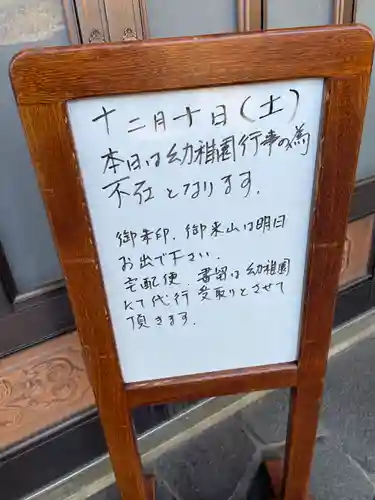 十二月十日(土)
本日は幼稚園行事の為
不在となります.
御朱印.御来山は明日
お出で下さい.
宅配便.書留は幼稚園
にて代行受取りとさせて
頂きます.